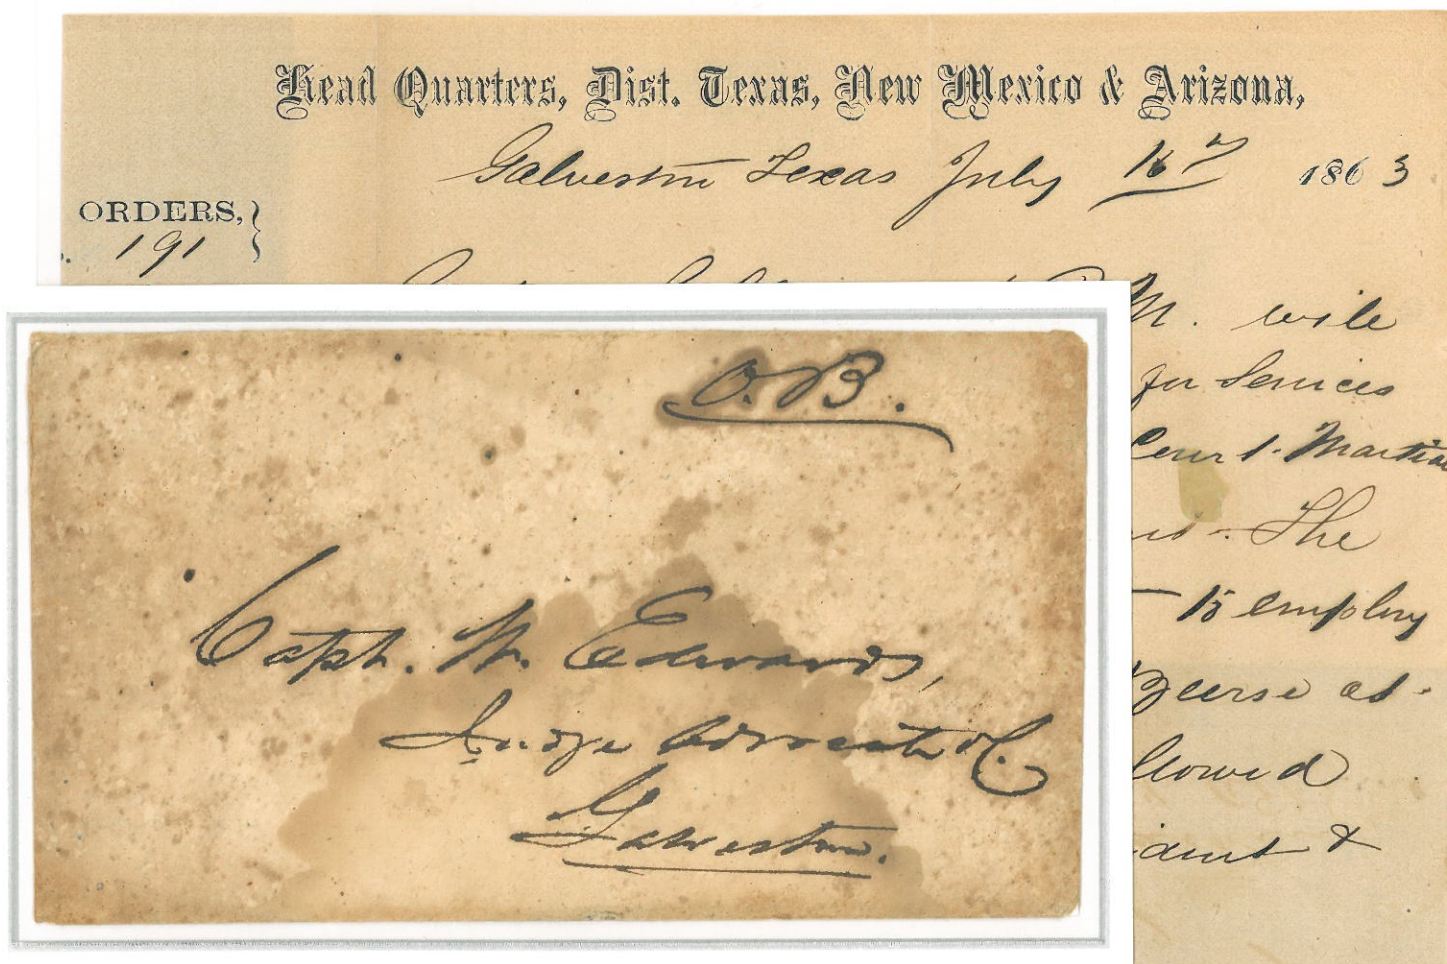 Head Quarters, Dist. Texas, New Mexico & Arizona,
Galveston Texas July 16th 1863
ORDERS,
191
M. will
for Services
Court-Martial
The
to employ
at
llowed
&
O.B.
Capt. W. Edwards,
Judge Advocate &C.
Galveston.